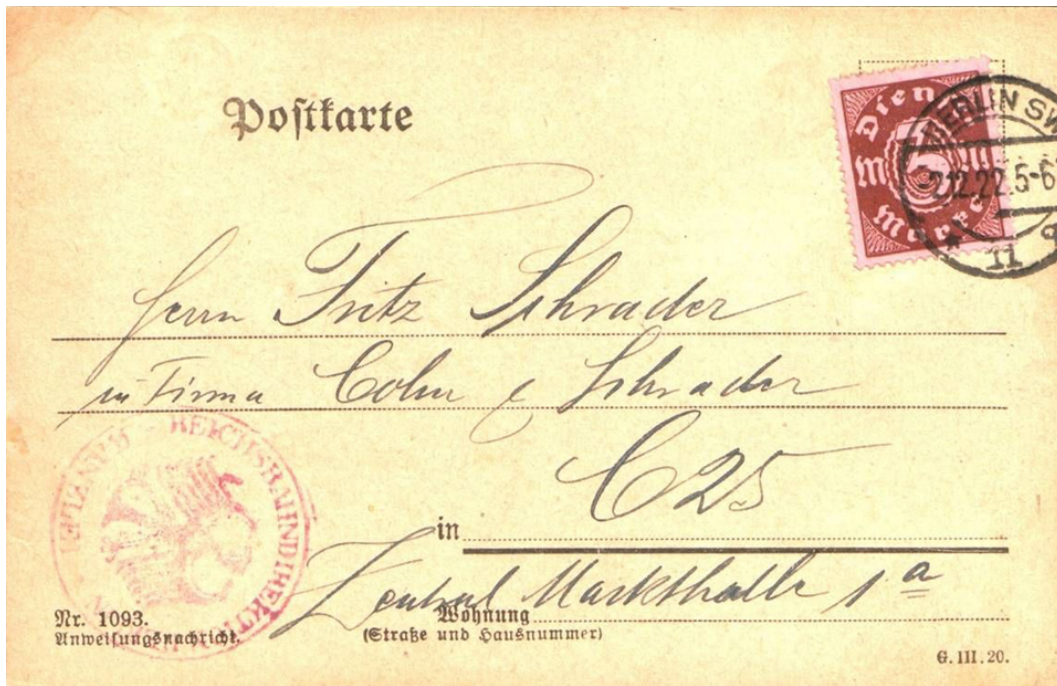 Postkarte
Dienst
5
Marke
BERLIN SW
-2.12.22.5-6
11
Herrn Fritz Schrader
in Firma Cohn & Schrader
C 25
in
Zentral Markthalle 1a
Wohnung
(Straße und Hausnummer)
REICHSBAHNDIREKTION
Nr. 1093.
Anweisungsnachricht.
G. III. 20.